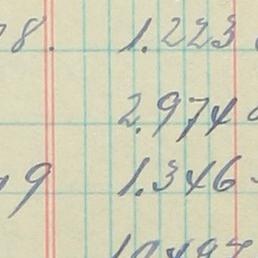 8. 1.223
2.974
9 1.346